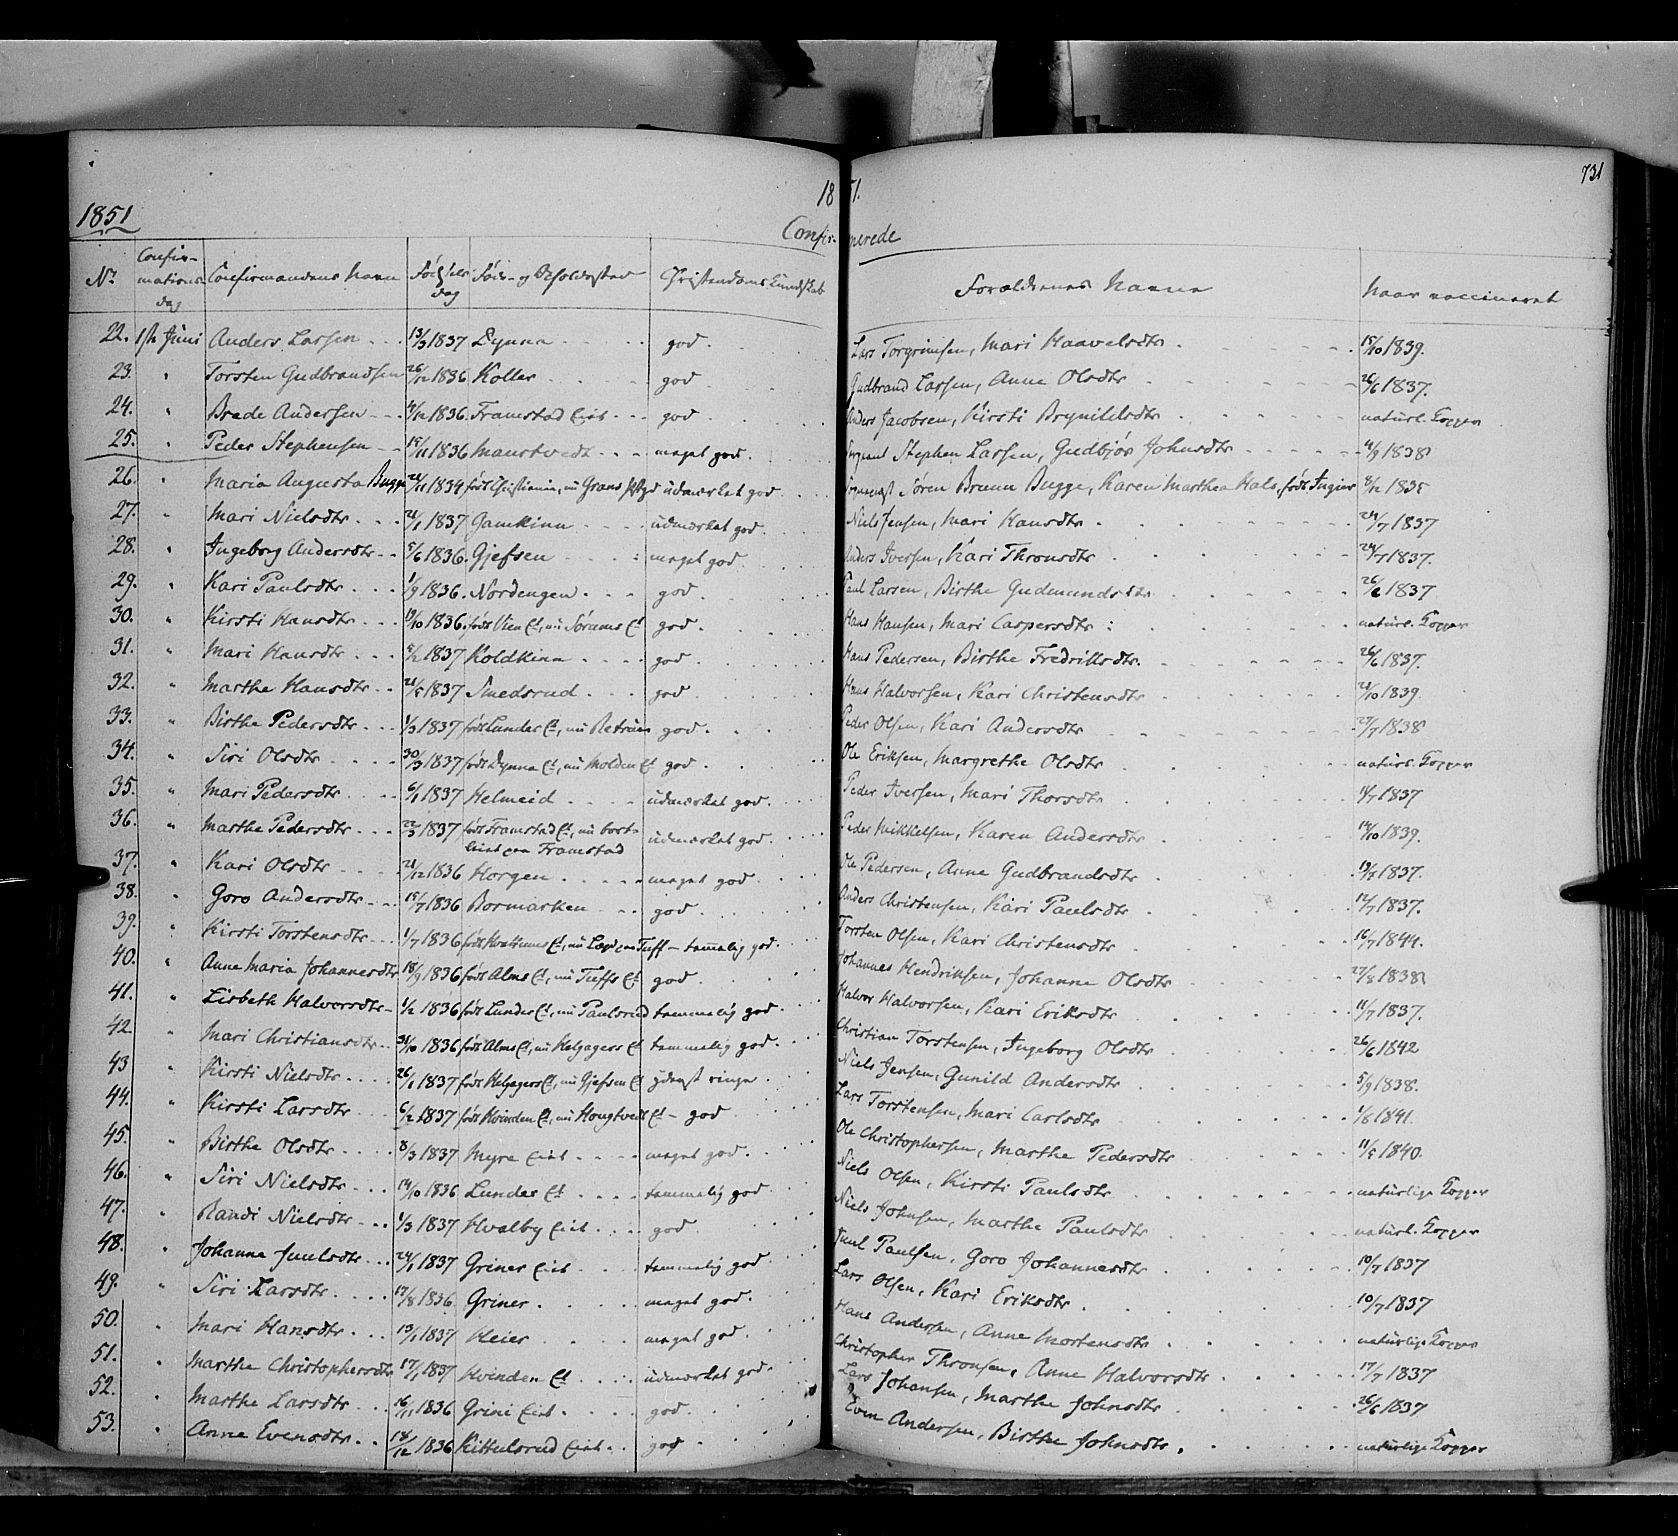 731
18 51.
1851
Confir- merede
No Confir- mations- dag Confirmandens Navn Fødsels dag Føde- og Opholdssted Christendoms Kundskab Forældrenes Navne Naar vaccineret
22. 1ste Juni Anders Larsen 13/3 1837 Dynna god. Lars Torgrimsen, Mari Haavelsdtr 15/10 1839.
23. " Torsten Gudbrandsen 26/12 1836 Koller god. Gudbrand Larsen, Anne Olsdtr 26/6 1837.
24. " Brede Andersen 4/12 1836. Framstad Eiet god. Anders Jacobsen, Kirsti Brynildsdtr naturl. Kopper
25. " Peder Stephensen 15/11 1836 Maurtvedt meget god. Sergeant Stephen Larsen, Gudbjør Johnsdtr 4/9 1838
26. " Maria Augusta Bugge 28/11 1834 født Christiania, nu Grans Pstgd udmærket god Søren Bruun Bugge, Karen Marthea Hals, født Ingier 8/12 1835
27. " Mari Nielsdtr 21/1 1837 Gamkinn udmærket god. Niels Jensen, Mari Hansdtr 24/7 1837
28. " Ingeborg Andersdtr 5/6 1836. Gjefsen meget god. Anders Iversen, Kari Thronsdtr 24/7 1837.
29. " Kari Paulsdtr 1/9 1836. Nordengen god. Paul Larsen, Birthe Gudmundsdtr 26/6 1837
30. " Kirsti Hansdtr 19/10 1836. født Vien Et, nu Sørums Et god. Hans Hansen, Mari Caspersdtr naturl. Kopper
31. " Mari Hansdtr 5/2 1837 Koldkinn god. Hans Pedersen, Birthe Fredriksdtr. 26/6 1837.
32. " Marthe Hansdtr 21/5 1837 Smedsrud god. Hans Halvorsen, Kari Christensdtr 21/10 1839.
33. " Birthe Pedersdtr 1/3 1837 født Lunder Et, nu god. Peder Olsen, Kari Andersdtr 27/7 1838
34. " Siri Olsdtr 30/3 1837 født Dynna Et, nu Molden Et god. Ole Eriksen, Margrethe Olsdtr naturl. Kopper
35. " Mari Pedersdtr 6/1 1837 Helmeid udmærket god. Peder Iversen, Mari Thorsdtr 11/7 1837
36. " Marthe Pedersdtr 22/3 1837 født Framstad Et, nu bort- udmærket god. Peder Mikkelsen, Karen Andersdtr 14/10 1839.
leiet paa Framstad
37. " Kari Olsdtr 21/12 1836 Horgen meget god. Ole Pedersen, Anne Gudbrandsdtr 19/8 1837.
38. " Goro Andersdtr 15/7 1836 Bormarken god. Anders Christensen, Kari Paulsdtr 17/7 1837.
39. " Kirsti Torstensdtr 1/7 1836 født Et, nu paa Tuff tammelig god. Torsten Olsen, Kari Christensdtr 16/7 1844.
40. " Anne Maria Johannesdtr 18/9 1836 født Alms Et, nu Tuffs Et god. Johannes Hendriksen, Johanne Olsdtr 27/8 1838
41. " Lisbeth Halvorsdtr 1/2 1836 født Lunder Et, nu Paulsrud tammelig god. Halvor Halvorsen, Kari Eriksdtr 11/7 1837.
42 " Mari Christiansdtr 31/10 1836 født Alms Et, nu Helgagers Et tammelig god. Christian Torstensen, Ingeborg Olsdtr 26/6 1842
43 " Kirsti Nielsdtr 26/1 1837 født Helgagers Et, nu Gjefsen Et yderst ringe. Niels Jensen, Gunild Andersdtr 5/9 1838.
44. " Kirsti Larsdtr 6/2 1837 født Hvinden Et, nu Hougtvedt Et god Lars Torstensen, Mari Carlsdtr 1/6 1841.
45. " Birthe Olsdtr 8/3 1837 Myre Eiet meget god. Ole Christophersen, Marthe Pedersdtr 11/5 1840.
46. " Siri Nielsdtr 14/10 1836 Lunder Et tammelig god Niels Olsen, Kirsti Paulsdtr naturlige Kopper
47. " Randi Nielsdtr 1/3 1837 Hvalby Eiet god Niels Johnsen, Marthe Paulsdtr naturl. Kopper
48. " Johanne Juulsdtr 24/1 1837 Griner Eiet tammelig god Juul Paulsen, Goro Johannesdtr 10/7 1837
49. " Siri Larsdtr 17/8 1836 Griner meget god. Lars Olsen, Kari Eriksdtr 10/7 1837
50. " Mari Hansdtr 13/1 1837 Heier meget god. Hans Andersen, Anne Mortensdtr naturlige Kopper
51. " Marthe Christophersdtr 17/1 1837 Hvinden Et udmærket god. Christopher Thronsen, Anne Halvorsdtr 17/7 1837
52. " Marthe Larsdtr 16/11 1836 Grini Eiet god Lars Johansen, Marthe Johnsdtr 26/6 1837
53. " Anne Evensdtr 18/12 1836 Kittelsrud Eiet god Even Andersen, Birthe Johnsdtr. naturlige Kopper